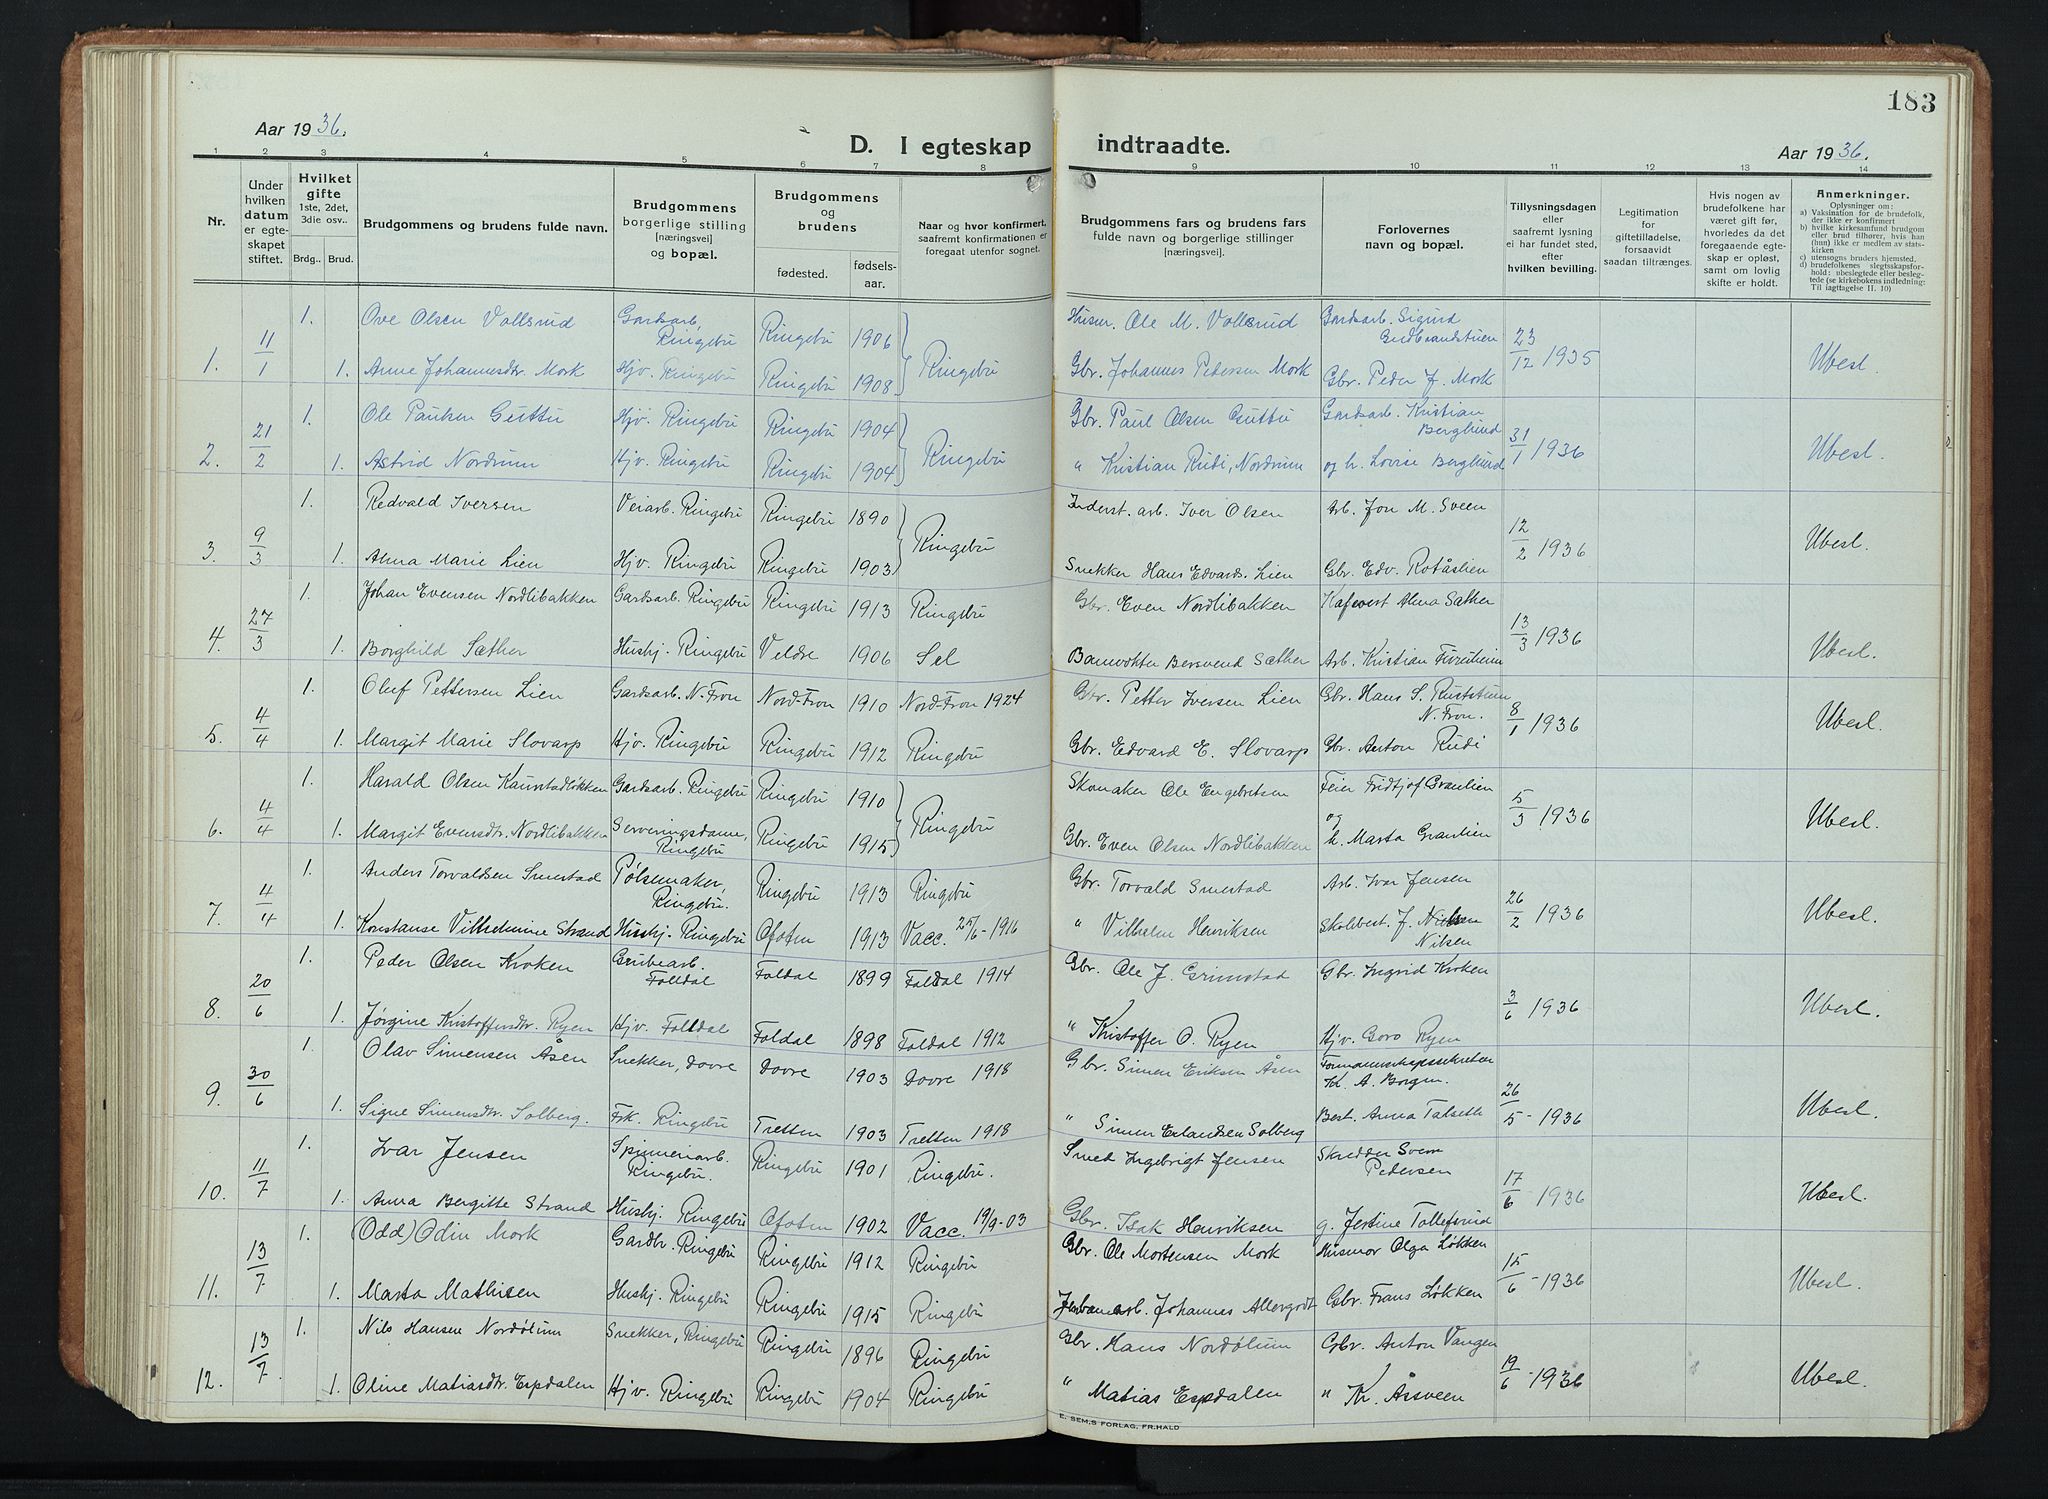 183
Aar 1936.
D. I egteskap indtraadte.
Aar 1936.
1 2 3 4 5 6 7 8 9 10 11 12 13 14
Nr.
Under hvilken datum er egteskapet stiftet.
Hvilket gifte 1ste, 2det, 3die osv..
Brdg.. Brud.
Brudgommens og brudens fulde navn.
Brudgommens borgerlige stilling [næringsvei] og bopæl.
Brudgommens og brudens
fødested. fødselsaar.
Naar og hvor konfirmert. saafremt konfirmationen er foregaat utenfor sognet.
Brudgommens fars og brudens fars fulde navn og borgerlige stillinger [næringsvei].
Forlovernes navn og bopæl.
Tillysningsdagen eller saafremt lysning ei har fundet sted, efter hvilken bevilling.
Legitimation for giftetilladelse, forsaavidt saadan tiltrænges.
Hvis nogen av brudefolkene har været gift før, hvorledes da det foregaaende egteskap er opløst, samt om lovlig skifte er holdt.
Anmerkninger.
Oplysninger om:
a) Vaksination for de brudefolk, der ikke er konfirmert
b) hvilke kirkesamfund brudgom eller brud tilhører, hvis han (hun) ikke er medlem av statskirken
c) utensogns bruders hjemsted.
d) brudefolkenes slegtsskapsforhold: ubeslegtede eller beslegtede (se kirkebokens indledning: Til iagttagelse II. 10)
1. 11/1 1. Ove Olsen Vollsrud Gardsarb. Ringebu Ringebu 1906 Ringebu Husm. Ole M. Vollsrud Gardsarb. Sigurd Gudbrandstuen 23/12 1935 Ubesl.
1. Anne Johannesdtr. Mork Hjv. Ringebu Ringebu 1908 Gbr. Johannes Pedersen Mork Gbr. Peder J. Mork
2. 21/2 1. Ole Paulsen Guttu Hjv. Ringebu Ringebu 1904 Ringebu Gbr. Paul Olsen Guttu Gardsarb. Kristian Berglund 31/1 1936 Ubesl.
1. Astrid Nordrum Hjv. Ringebu Ringebu 1904 " Kristian Rudi, Nordrum og h. Lovise Berglund
3. 9/3 1. Redvald Iversen Veiarb. Ringebu Ringebu 1890 Ringebu Inderst. arb. Iver Olsen Arb. Jon M. Sveen 12/2 1936 Ubesl.
1. Anna Marie Lien Hjv. Ringebu Ringebu 1903 Snekker Hans Edvards. Lien Gbr. Edv. Rotåslien
4. 27/3 1. Johan Evensen Nordlibakken Gardsarb. Ringebu Ringebu 1913 Ringebu Gbr. Even Nordlibakken Kafevert Alma Sæther 13/3 1936 Ubesl.
1. Borghild Sæther Hushj. Ringebu Veldre 1906 Sel Banevokter Bersvend Sæther Arb. Kristian Furuheim
5. 4/4 1. Oluf Pettersen Lien Gardsarb. N. Fron Nord-Fron 1910 Nord-Fron 1924 Gbr. Petter Iversen Lien Gbr. Hans S. Ruststuen N. Fron. 8/1 1936 Ubesl.
1. Margit Marie Slovarp Hjv. Ringebu Ringebu 1912 Ringebu Gbr. Edvard E. Slovarp Gbr. Anton Rudi
6. 4/4 1. Harald Olsen Kaunstadløkken Gardsarb. Ringebu Ringebu 1910 Ringebu Skomaker Ole Engebretsen Feier Fridtjof Granlien 5/3 1936 Ubesl.
1. Margit Evensdtr. Nordlibakken Serveringsdame, Ringebu Ringebu 1915 Gbr. Even Olsen Nordlibakken og h. Marta Granlien
7. 4/4 1. Anders Torvaldsen Smestad Pølsemaker, Ringebu. Ringebu 1913 Ringebu Gbr. Torvald Smestad Arb. Ivar Jensen 26/2 1936 Ubesl.
1. Konstanse Vilhelmine Strand Hushj. Ringebu Ofoten 1913 Vacc. 25/6-1916 " Vilhelm Henriksen J. Nilsen
8. 20/6 1. Peder Olsen Kroken Grubearb. Folldal Foldal 1899 Foldal 1914 Gbr. Ole J. Grimstad Gbr. Ingrid Kroken 3/6 1936 Ubesl.
1. Jørgine Kristoffersdtr. Ryen Hjv. Folldal Foldal 1898 Foldal 1912 " Kristoffer O. Ryen Hjv. Goro Ryen
9. 30/6 1. Olav Simensen Åsen Snekker, Dovre Dovre 1903 Dovre 1918 Gbr. Simen Eriksen Åsen Formannskapssekretær K. A. Borgen. 26/5-1936 Ubesl.
1. Signe Simensdtr. Solberg. Frk. Ringebu Tretten 1903 Tretten 1918 " Simen Erlandsen Solberg Best. Anna Talseth
10. 11/7 1. Ivar Jensen Spinneriarb. Ringebu. Ringebu 1901 Ringebu. Smed Ingebrigt Jensen Skredder Svein Pedersen 17/6-1936 Ubesl.
1. Anna Bergitte Strand Hushj. Ringebu Ofoten 1902 Vacc. 19/9-03 Gbr. Isak Henriksen g. Jertine Tollefsrud
11. 13/7 1. (Odd) Odin Mork Gardbr. Ringebu Ringebu 1912 Ringebu Gbr. Ole Mortensen Mork Husmor Olga Løkken 15/6-1936 Ubesl.
1. Marta Mathisen Hushj. Ringebu Ringebu 1915 Ringebu Jernbanearb. Johannes Allergodt Gbr. Frans Løkken
12. 13/7 1. Nils Hansen Nordølum Snekker, Ringebu Ringebu 1896 Ringebu Gbr. Hans Nordølum Gbr. Anton Vangen 19/6-1936 Ubesl.
1. Oline Matiasdtr. Espdalen Hjv. Ringebu Ringebu 1904 Ringebu " Matias Espdalen " K. Åsveen
E. SEM,S FORLAG, FR.HALD